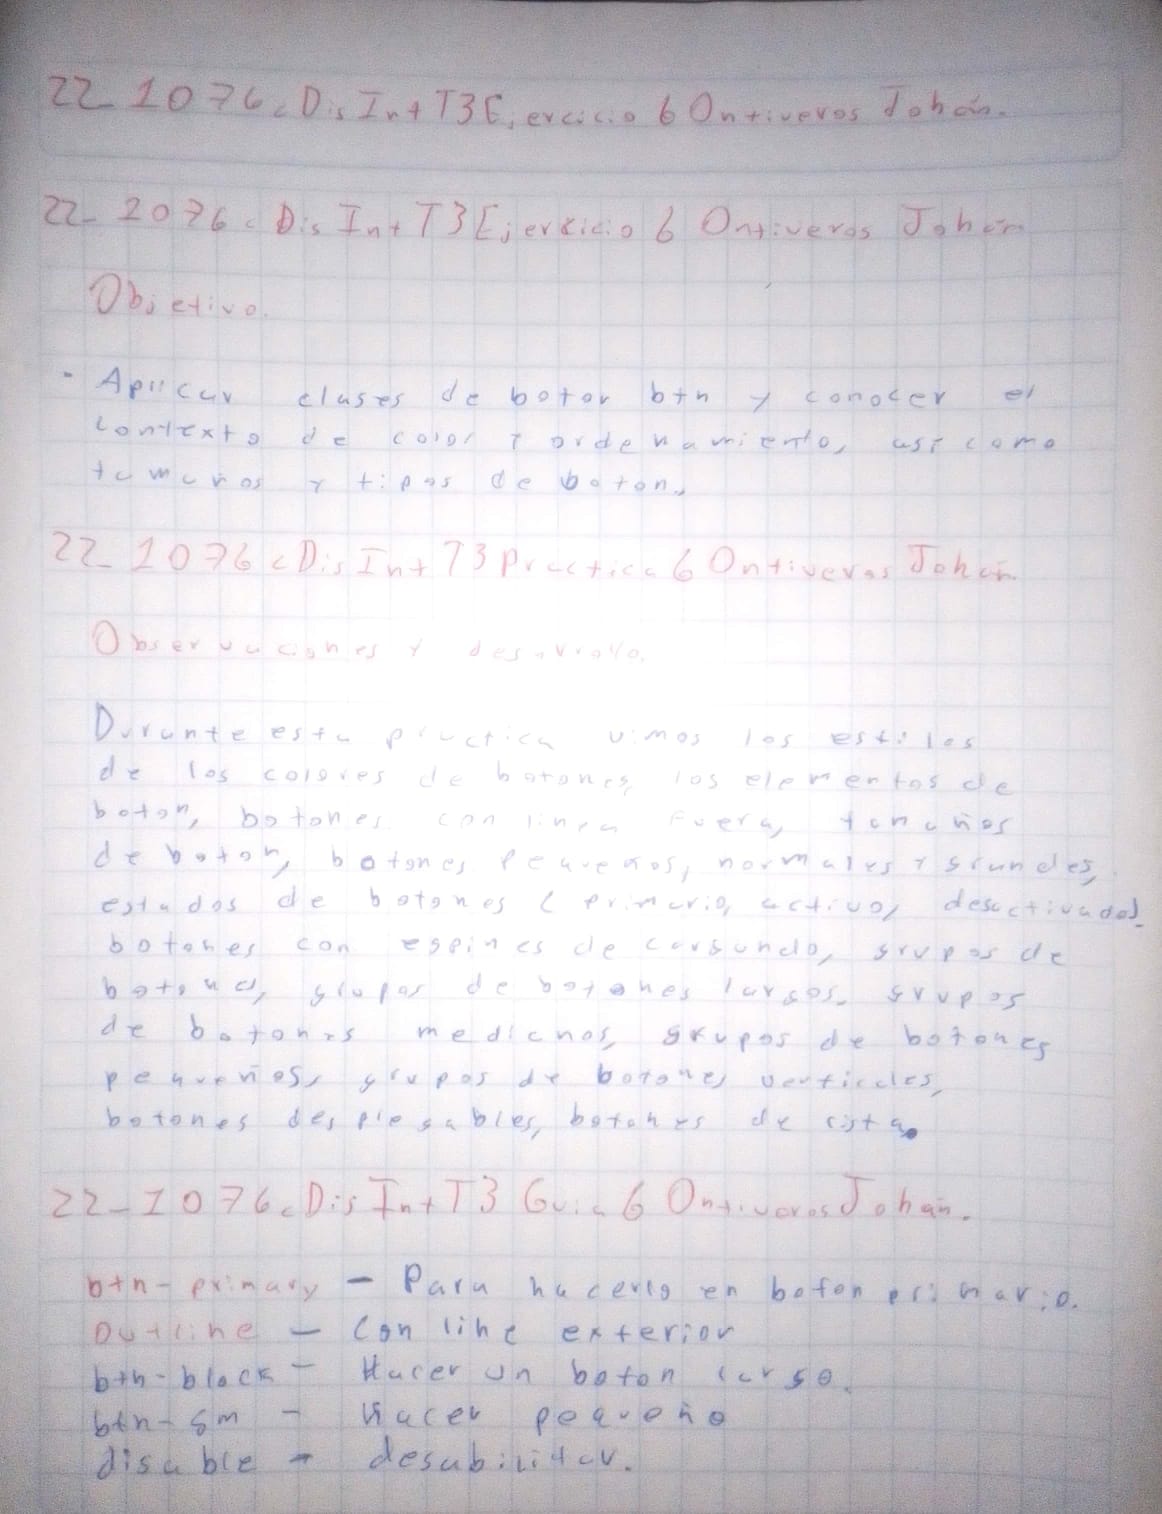 22_1076cDisIntT3Ejercicio6OntiverosJohán.
22_2076cDisIntT3Ejercicio6OntiverosJohán
Objetivo.
- Aplicar clases de boton btn y conocer el
contexto de color y ordenamiento, así como
tamaños y tipos de boton.
22_1076cDisIntT3Practica6OntiverosJohán
Observaciones y desarrollo.
Durante esta practica vimos los estilos
de los colores de botones, los elementos de
boton, botones con linea fuera, tamaños
de boton, botones pequeños, normales y grandes,
estados de botones (primario, activo, desactivado)
botones con espines de cargando, grupos de
botones, grupos de botones largos, grupos
de botones medianos, grupos de botones
pequeños, grupos de botones verticales,
botones desplegables, botones de lista.
22-1076cDisIntT3Guia6OntiverosJohán.
btn-primary - Para hacerlo en boton primario.
Outline - Con line exterior
btn-block - Hacer un boton largo.
btn-sm - Hacer pequeño
disable - desabilitar.